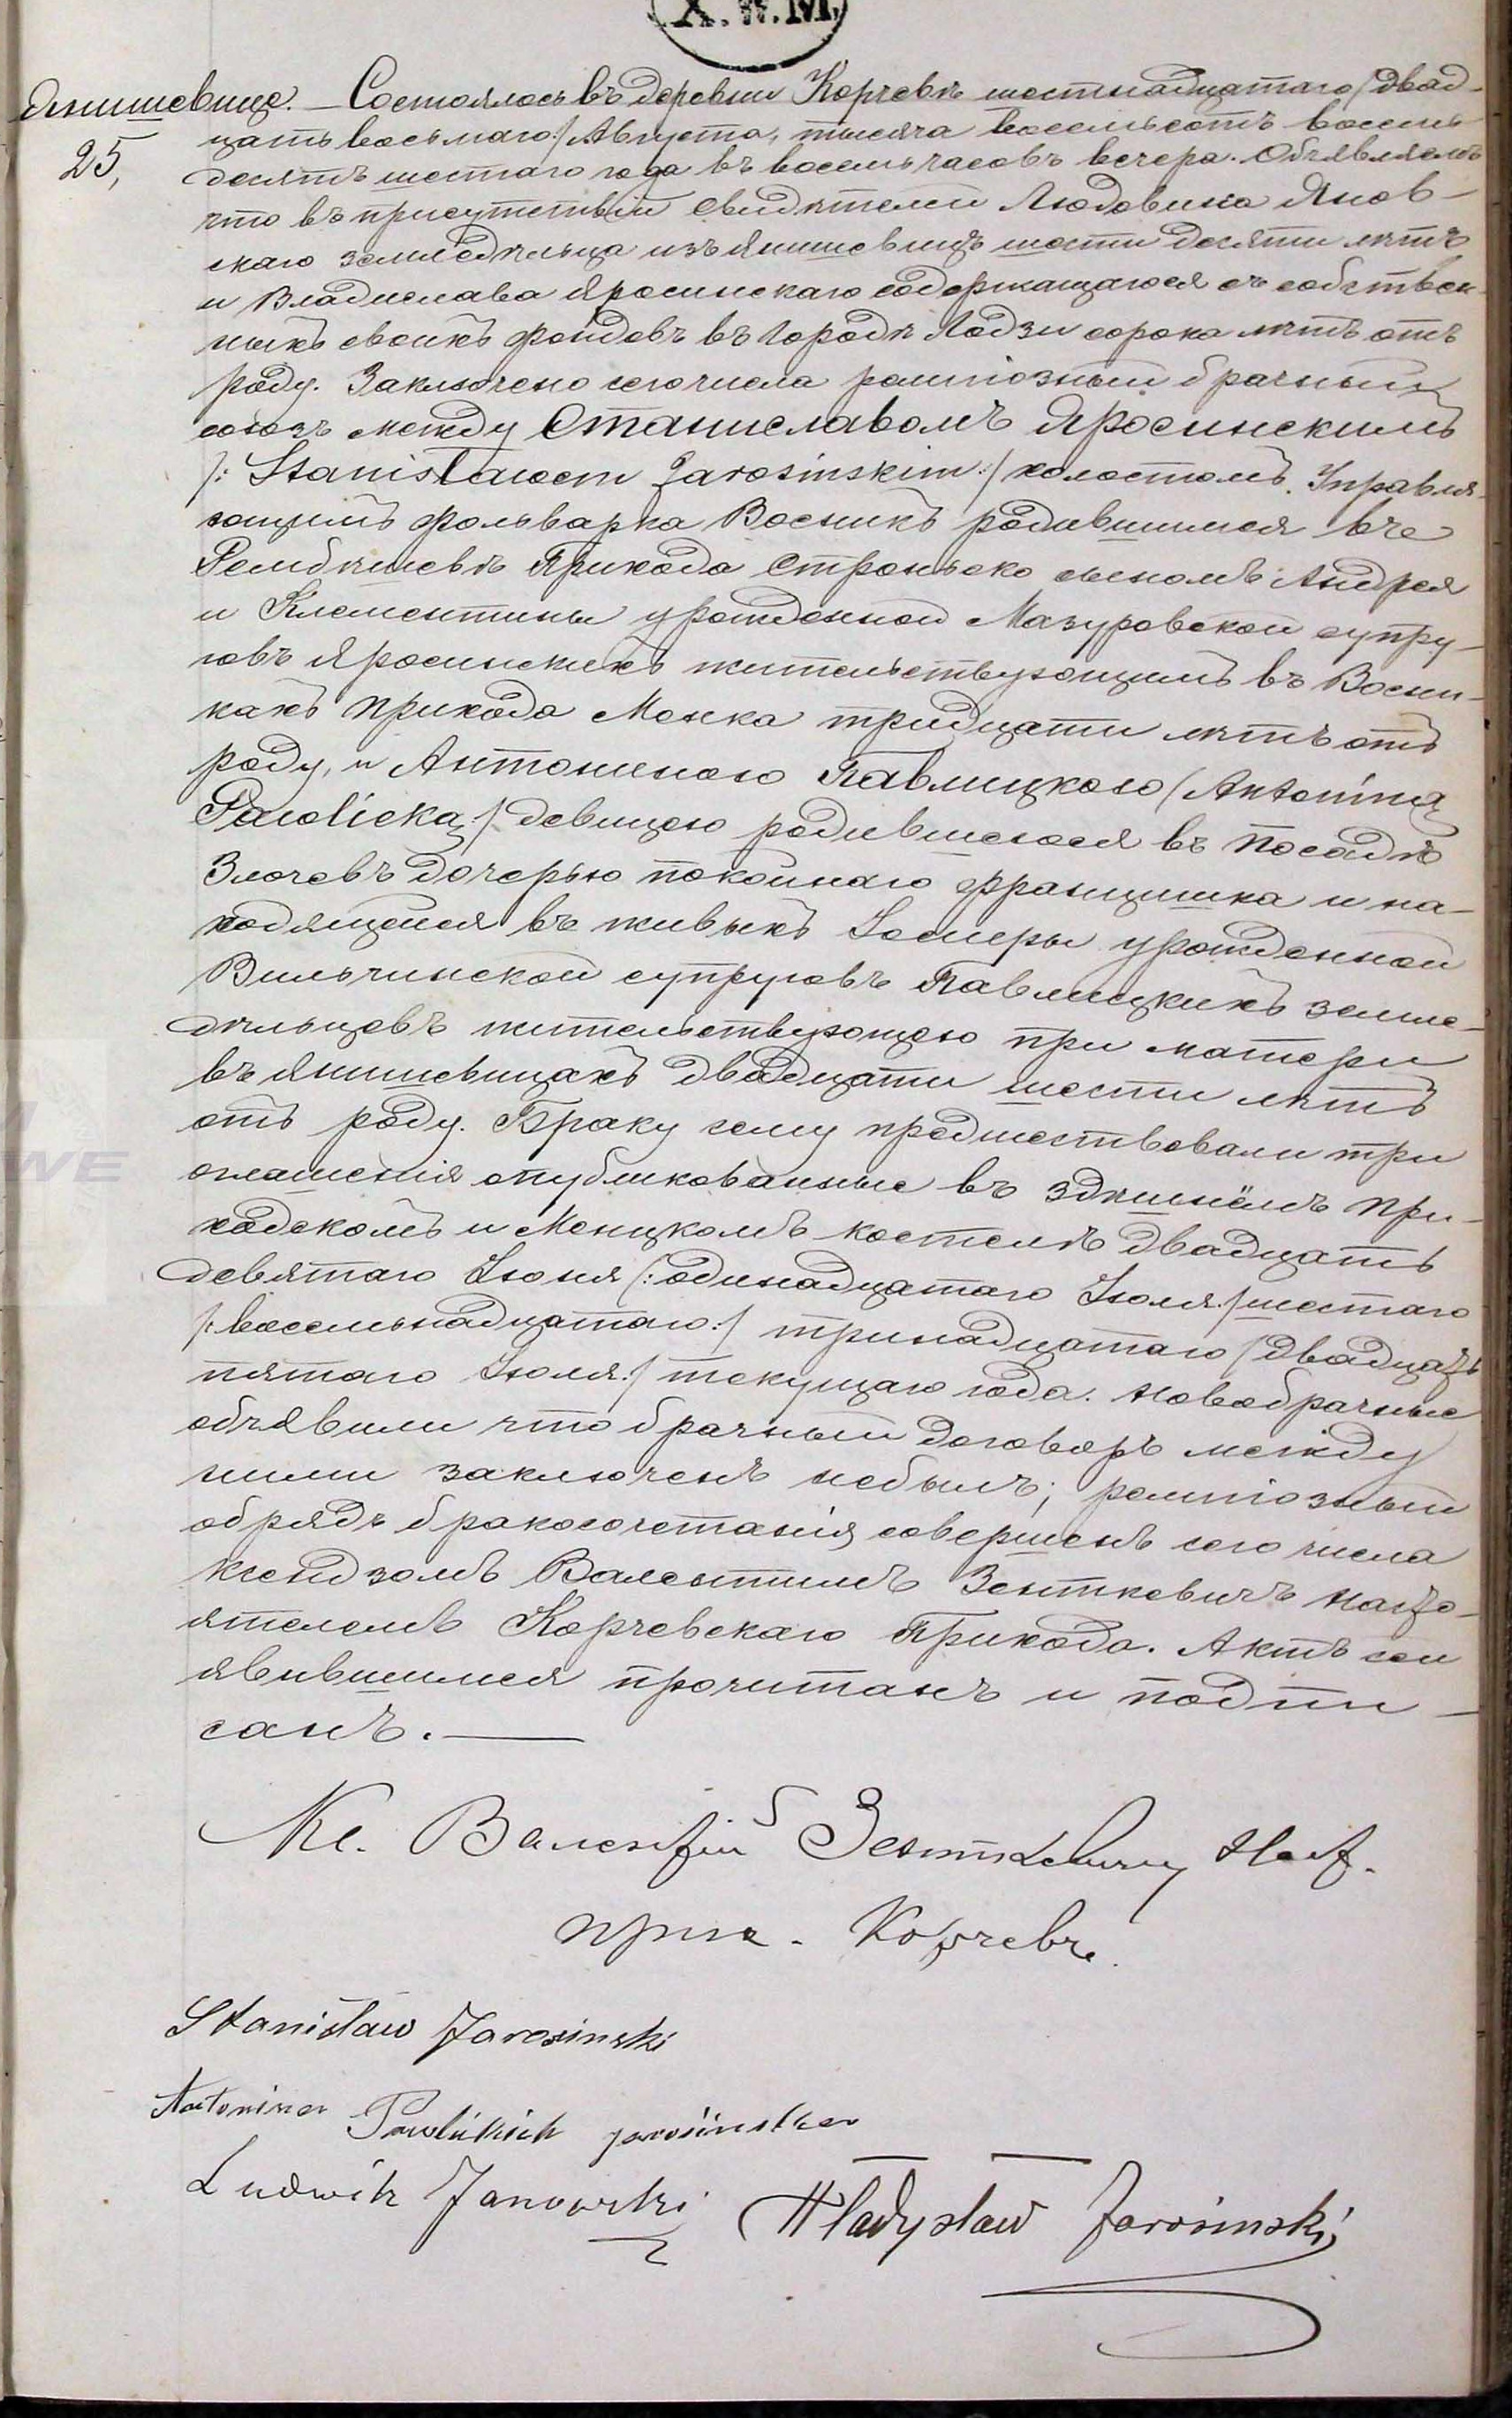 X.W.M.
Янишевице. — Состоялось въ деревни Корчевѣ шестнадцатаго /двад-
25, цать восьмаго:/ Августа, тысяча восемьсотъ восемь-
десятъ шестаго года въ восемь часовъ вечера. Объявляемъ
что въ присутствіи свидѣтелей Людовика Янов-
скаго земледѣльца изъ Янишевицъ шести десяти лѣтъ
и Владислава Яросинскаго содержащагося съ собствен-
ныхъ своихъ фондовъ въ городѣ Лодзи сорока лѣтъ отъ
роду. Заключено сего числа религіозный брачный
союзъ между Станиславомъ Яросинскимъ
/: Stanisławem Jarosinskim:/ холостомъ. Управля-
ющимъ фольварка Восникъ родившимся въ
Рембѣшевѣ Прихода Стронско сыномъ Андрея
и Клементины урожденной Мазуровской супру-
говъ Яросинскихъ жительствующимъ въ Восни-
кахъ прихода Монка тридцати лѣтъ отъ
роду, и Антониною Павлицкою (Antoniną
Pawlicką:/ девицею родившеюся въ посадѣ
Злочевъ дочерью покойнаго Францишка и на-
ходящейся въ живыхъ Юзефы урожденной
Вильчинской супруговъ Павлицкихъ земле-
дѣльцевъ жительствующею при матери
въ Янишевицахъ двадцати шести лѣтъ
отъ роду. Браку сему предшествовали три
оглашенія опубликованные въ здѣшнемъ при-
ходскомъ и Монцкомъ костелѣ двадцать
девятаго Іюня (: одинадцатаго Іюля:/ шестаго
/: восемьнадцатаго:/ тринадцатаго /двадцать
пятаго Іюля:/ текущаго года. Новобрачные
объявили что брачный договоръ между
ними заключенъ небылъ; религіозный
обрядъ бракосочетанія совершенъ сего числа
ксендзомъ Валентимъ Зенткевичъ насто-
ятелемъ Корчевскаго Прихода. Актъ сей
явившимся прочитанъ и подпи-
санъ. —
Кс. Валентій Зенткевичъ Наст.
прих. Корчевъ.
Stanisław Jarosinski
Antonina Pawlickich jarosinska
Ludwik Janowski Władysław Jarosinski